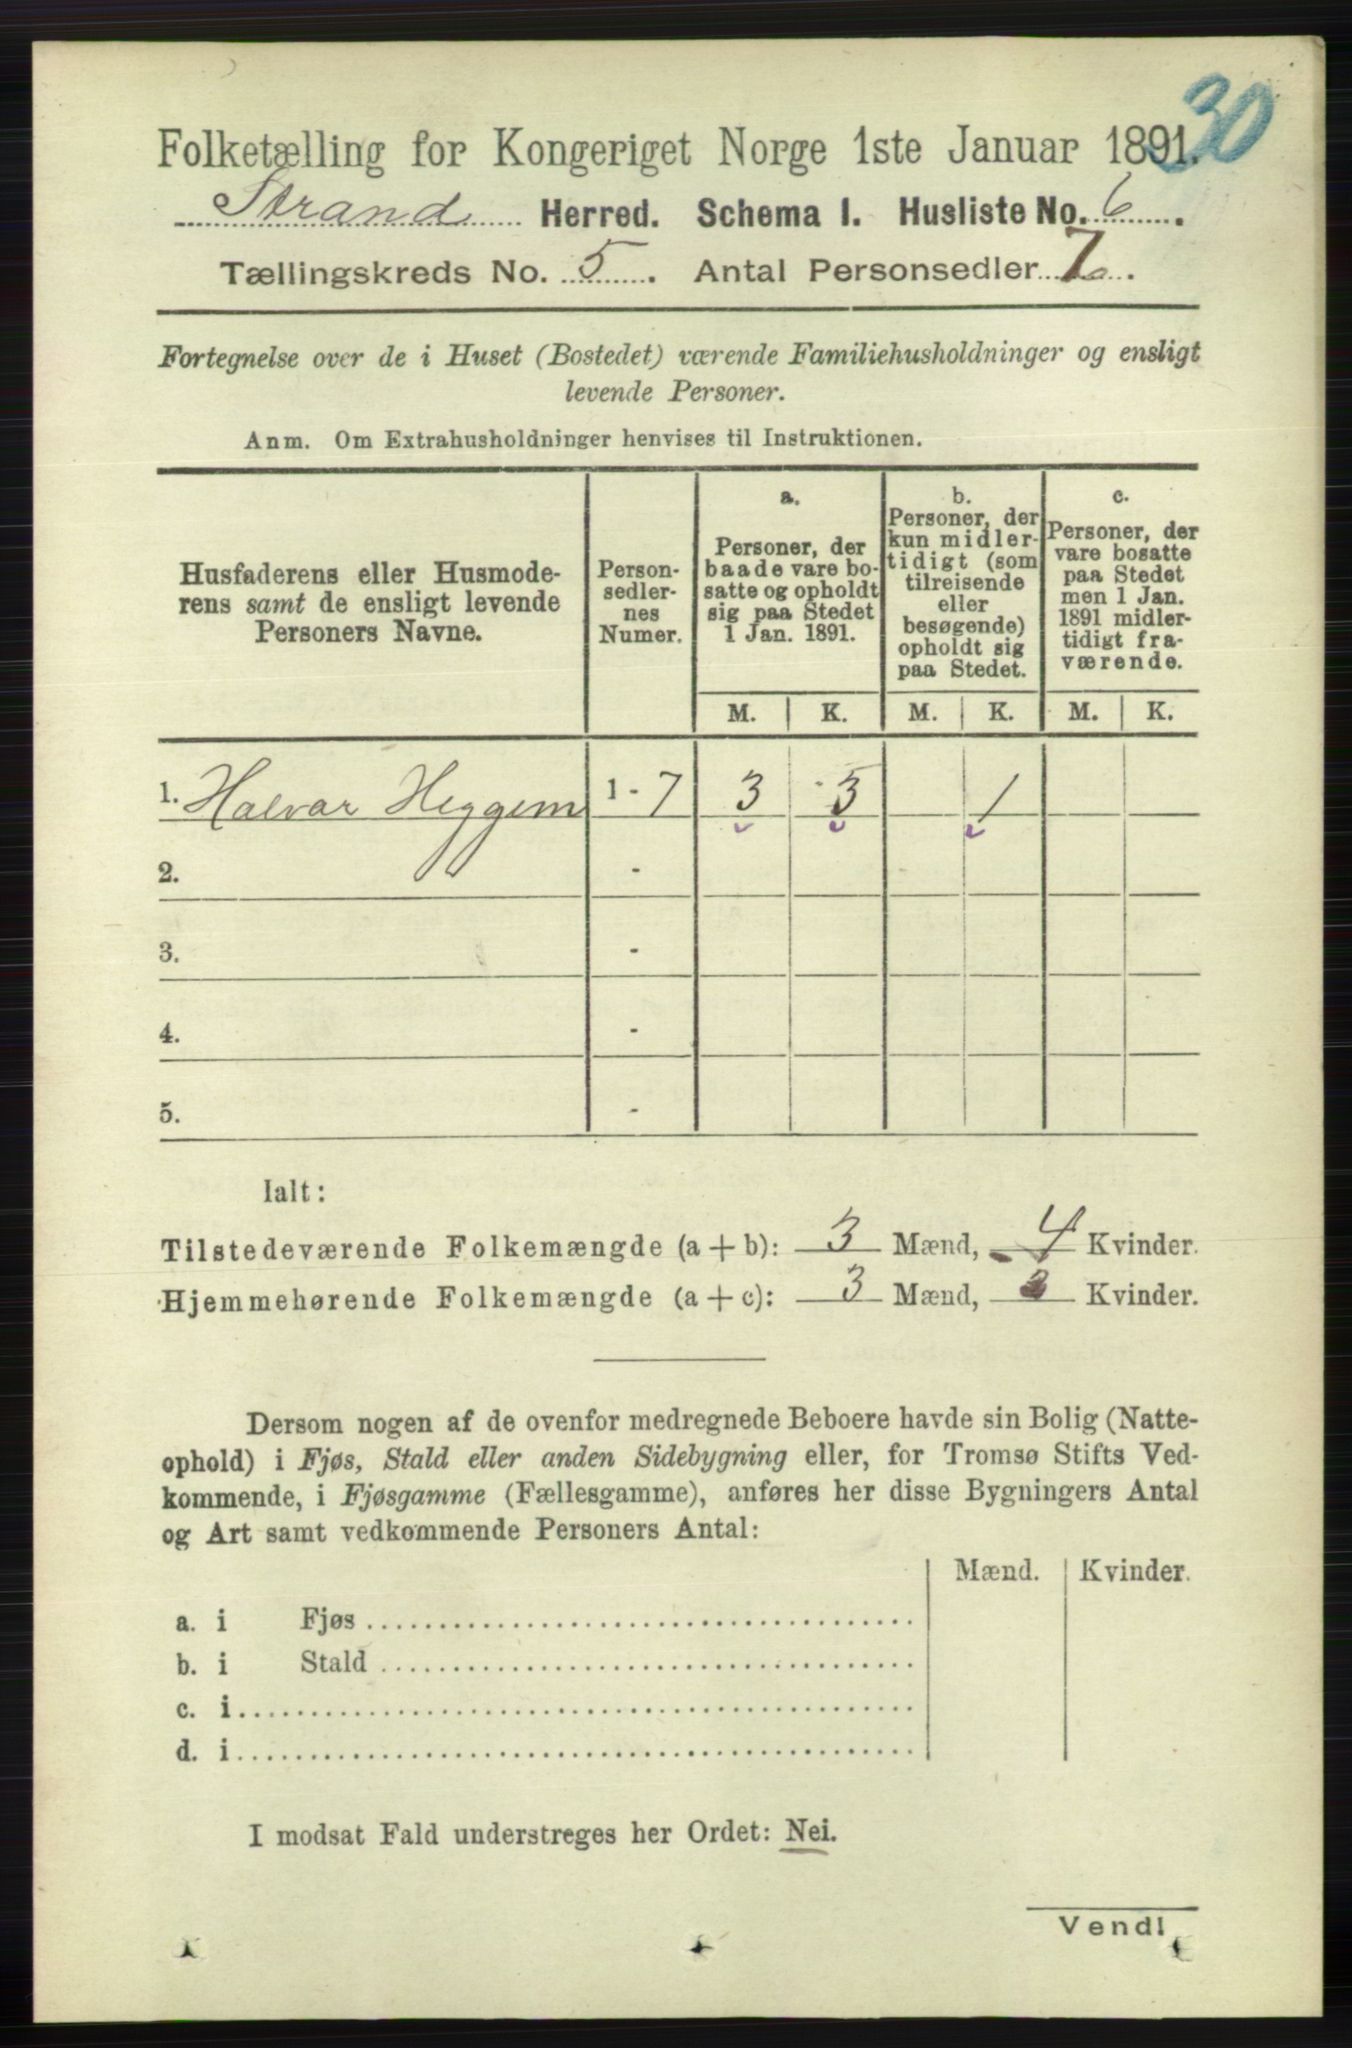 30
Folketælling for Kongeriget Norge 1ste Januar 1891.
Strand Herred. Schema I. Husliste No. 6.
Tællingskreds No. 5. Antal Personsedler 7.
Fortegnelse over de i Huset (Bostedet) værende Familiehusholdninger og ensligt
levende Personer.
Anm. Om Extrahusholdninger henvises til Instruktionen.
Husfaderens eller Husmode-
rens samt de ensligt levende
Personers Navne.
Person-
sedler-
nes
Numer.
a.
Personer, der
baade vare bo-
satte og opholdt
sig paa Stedet
1 Jan. 1891.
b.
Personer, der
kun midler-
tidigt (som
tilreisende
eller
besøgende)
opholdt sig
paa Stedet.
c.
Personer, der
vare bosatte
paa Stedet
men 1 Jan.
1891 midler-
tidigt fra-
værende.
M. K. M. K. M. K.
1. Halvar Heggem 1 - 7 3 3 1
2. -
3. -
4. -
5. -
Ialt:
Tilstedeværende Folkemængde (a + b): 3 Mænd, 4 Kvinder.
Hjemmehørende Folkemængde (a + c): 3 Mænd, 3 Kvinder.
Dersom nogen af de ovenfor medregnede Beboere havde sin Bolig (Natte-
ophold) i Fjøs, Stald eller anden Sidebygning eller, for Tromsø Stifts Ved-
kommende, i Fjøsgamme (Fællesgamme), anføres her disse Bygningers Antal
og Art samt vedkommende Personers Antal:
Mænd. Kvinder.
a. i Fjøs
b. i Stald
c. i
d. i
I modsat Fald understreges her Ordet: Nei.
Vend!